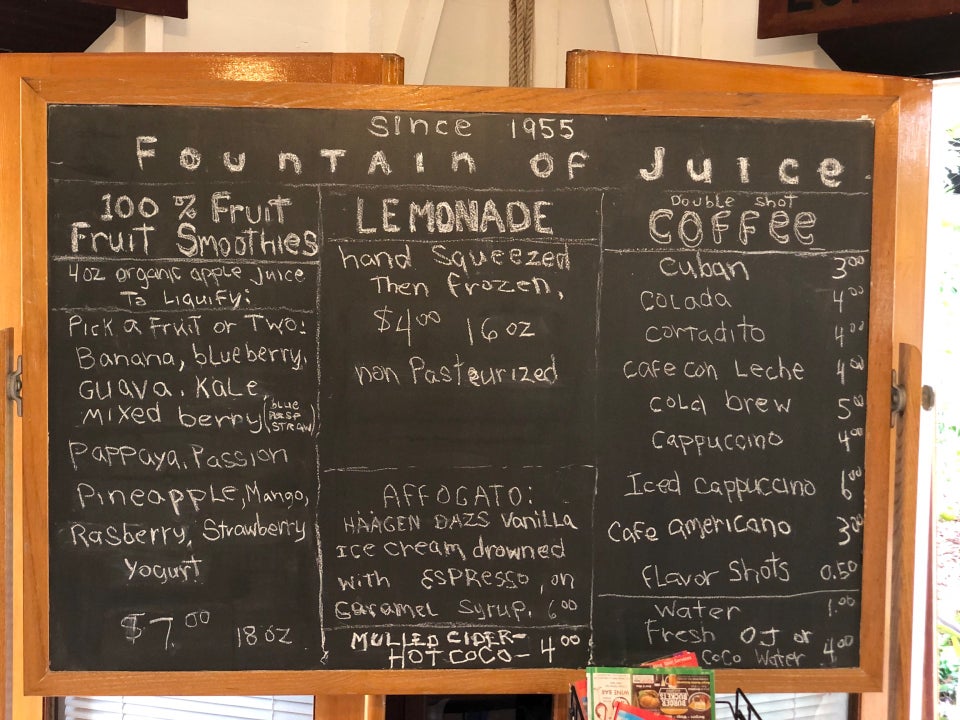 Since 1955
Fountain of Juice
100 % Fruit
Fruit Smoothies
4oz organic apple Juice
To Liquify:
Pick a Fruit or Two:
Banana, blueberry,
Guava, Kale,
Mixed berry (blue
Rasp
Straw)
Pappaya, Passion
Pineapple, Mango,
Rasberry, Strawberry
Yogurt
$7.00 18oz
LEMONADE
hand Squeezed
Then frozen,
$4.00 16oz
non Pasteurized
AFFOGATO:
HÄÄGEN DAZS Vanilla
Ice cream, drowned
with ESPRESSO, on
Caramel Syrup, 6.00
MULLED CIDER-
HOT COCO- 4.00
Double Shot
COFFEE
Cuban 3.00
Colada 4.00
Cortadito 4.00
Cafe con Leche 4.00
Cold brew 5.00
Cappuccino 4.00
Iced Cappuccino 6.00
Cafe americano 3.00
Flavor Shots 0.50
Water 1.00
Fresh OJ or
Coco Water 4.00
WINE BAR
BURGER
BUCKETS